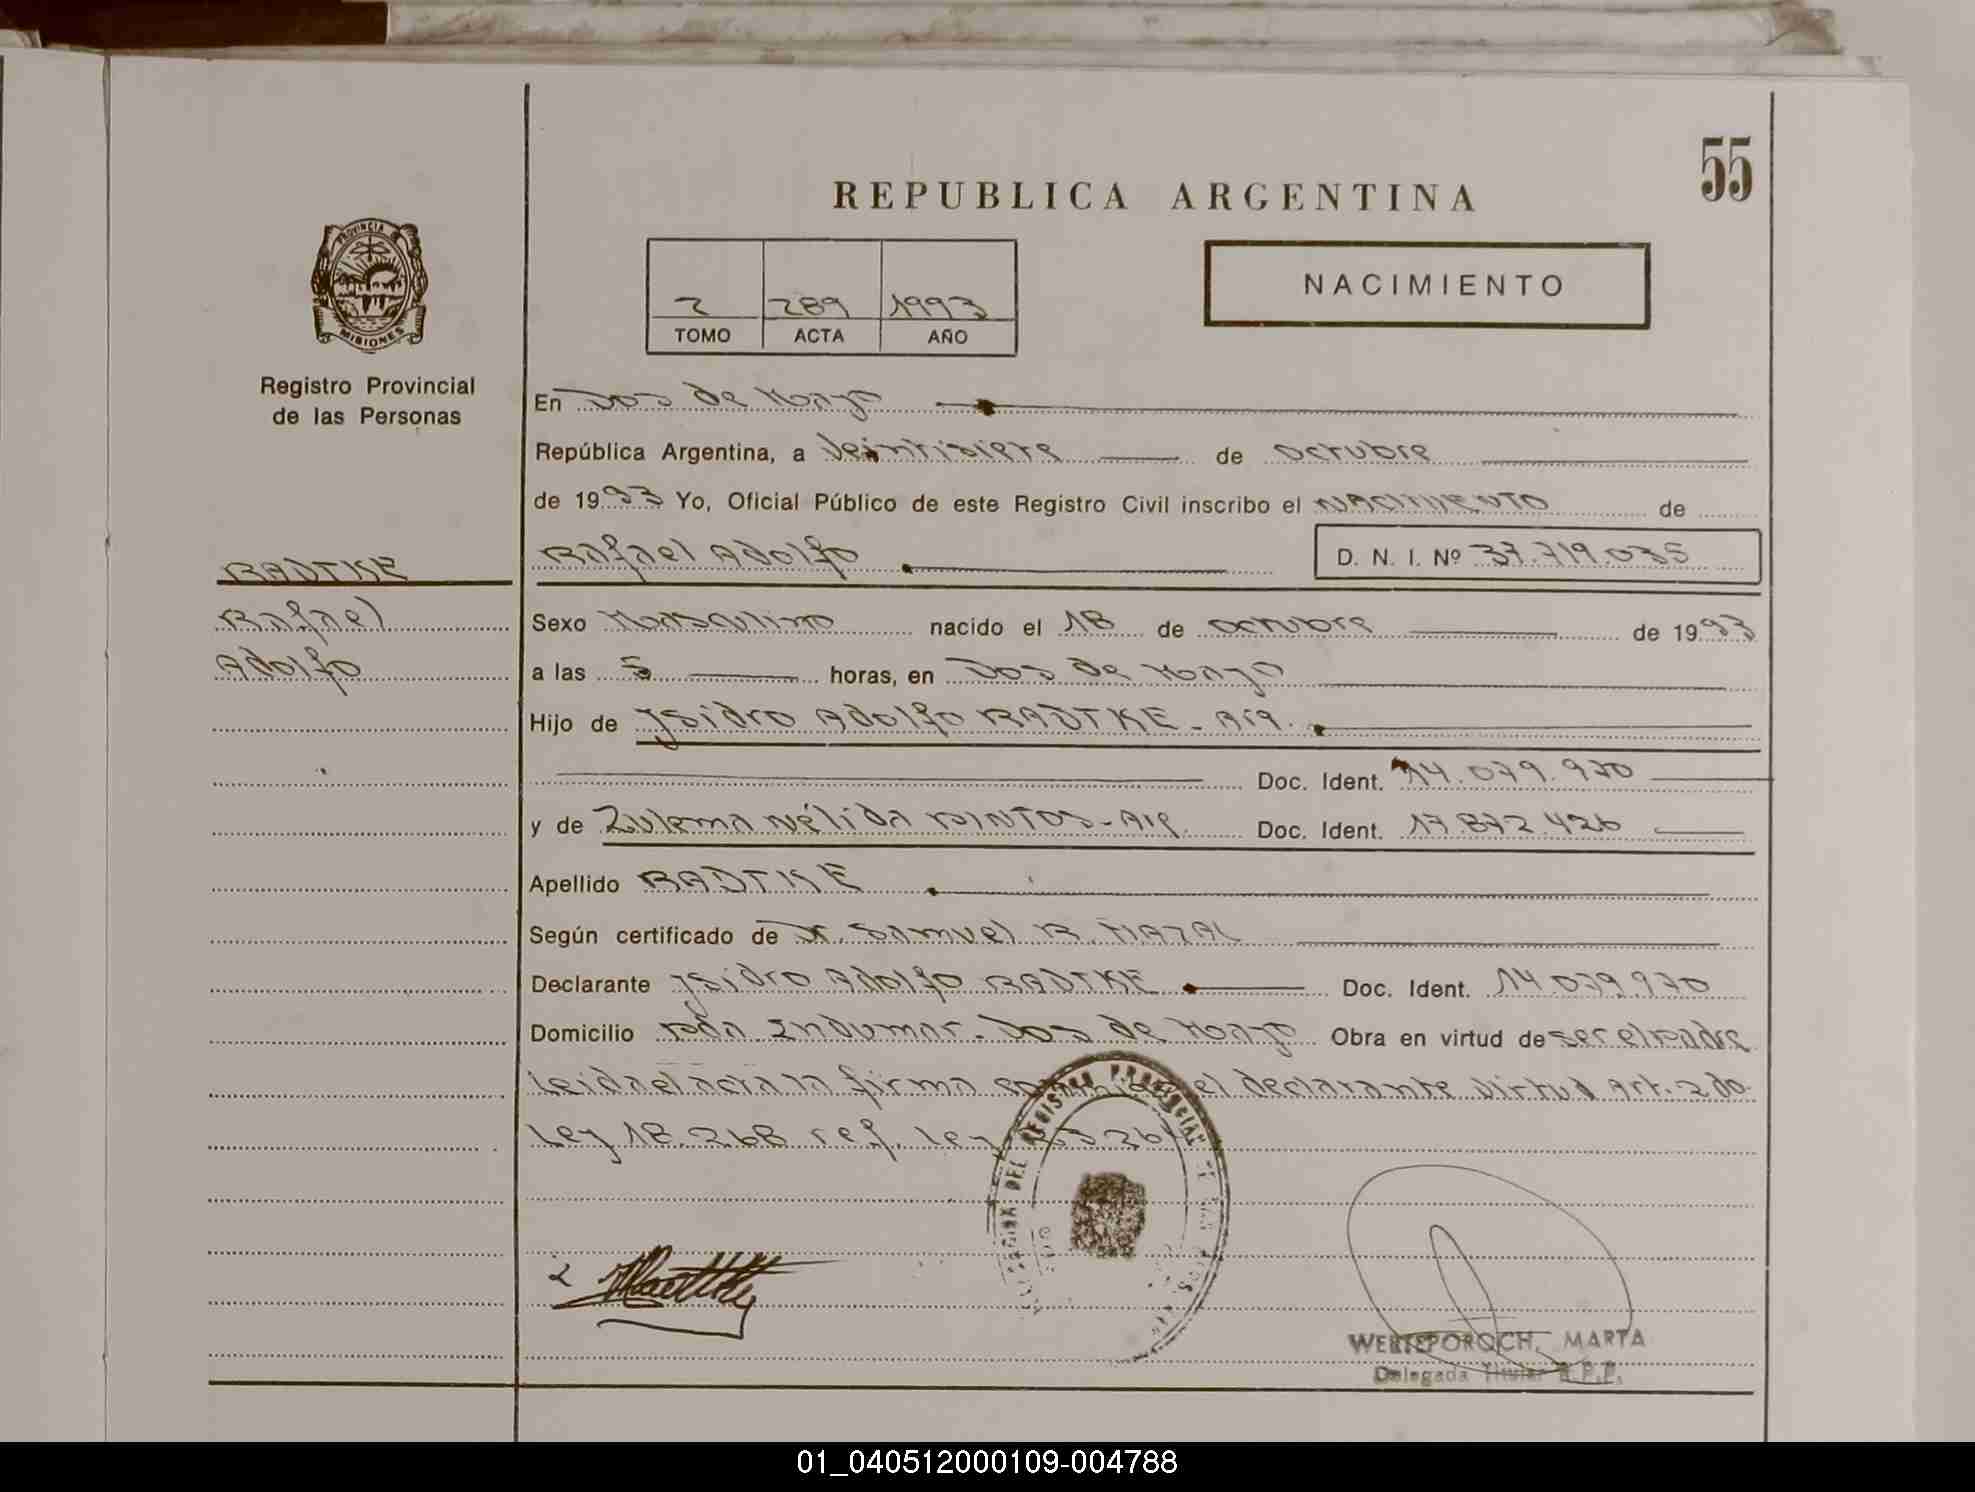 55
REPUBLICA ARGENTINA
NACIMIENTO
2 289 1993
TOMO ACTA AÑO
PROVINCIA
MISIONES
Registro Provincial
de las Personas
En Dos de Mayo
República Argentina, a Veintisiete de octubre
de 1993 Yo, Oficial Público de este Registro Civil inscribo el NACIMIENTO de
Rafael Adolfo D. N. I. Nº 37.719.035
RADTKE
Rafael
Adolfo
Sexo Masculino nacido el 18 de octubre de 1993
a las 5 horas, en Dos de Mayo
Hijo de Ysidro Adolfo RADTKE - Arg.
Doc. Ident. 14.079.970
y de Zulema Nélida PINTOS - Arg. Doc. Ident. 17.872.426
Apellido RADTKE
Según certificado de Dr. Samuel R.
Declarante Ysidro Adolfo RADTKE Doc. Ident. 14.079.970
Domicilio Pda. Indumar. Dos de Mayo Obra en virtud de ser el padre
Leida el acta la firma conmigo el declarante virtud Art. 2do.
Ley 18.268 ref. Ley
DEL REGISTRO PROVINCIAL DE LAS
WERTEPOROCH, MARTA
Delegada Titular R.P.P.
01_040512000109-004788